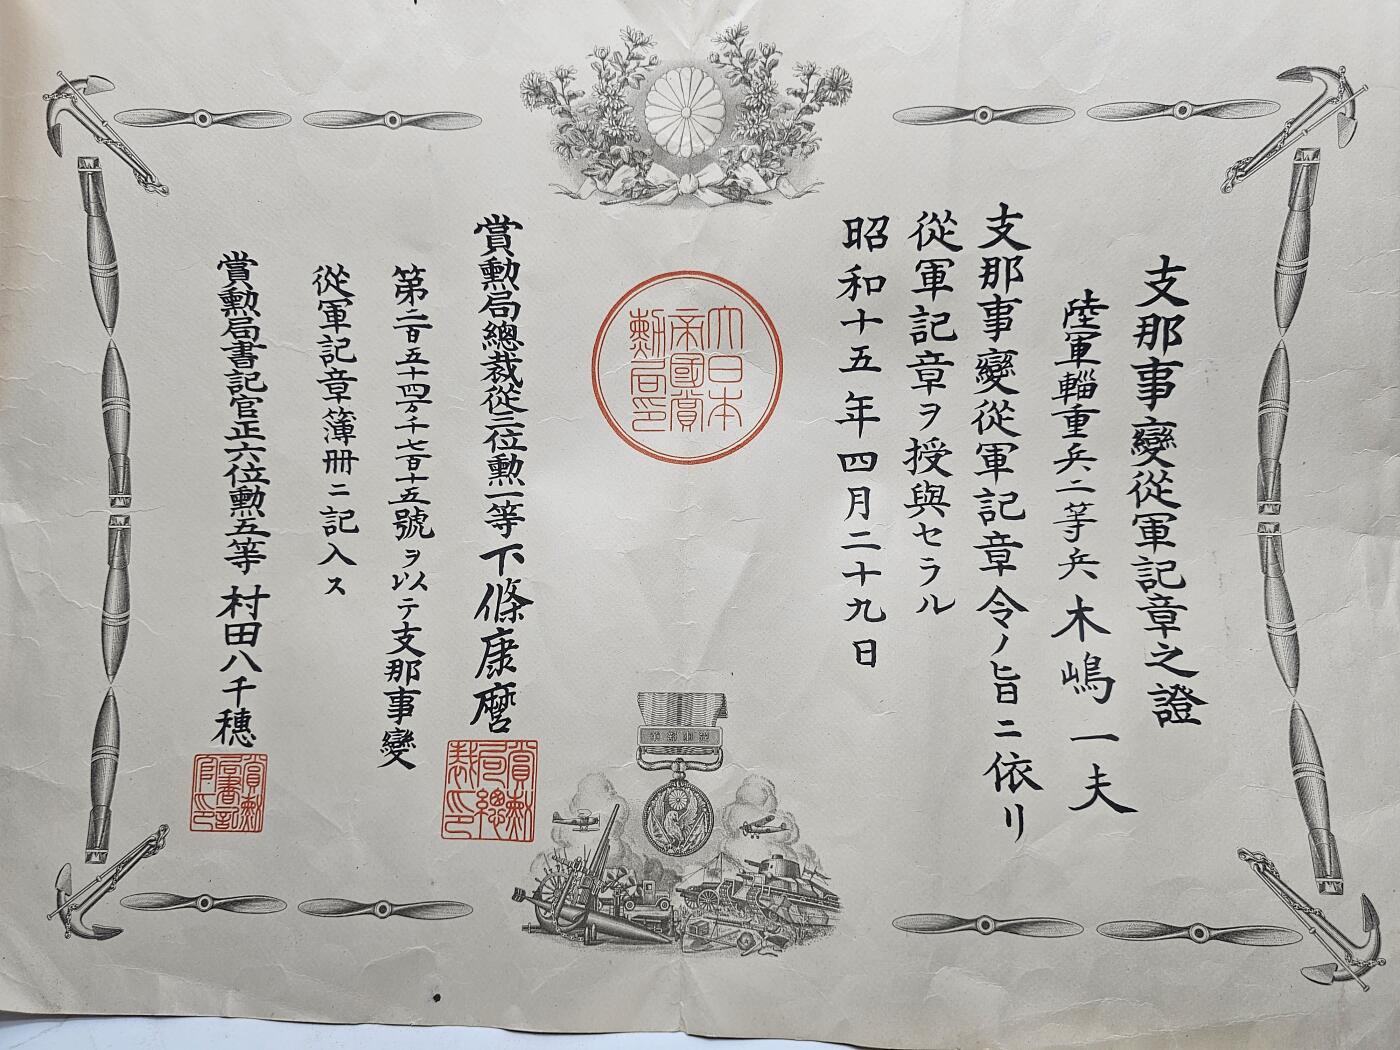 支那事變從軍記章之證
陸軍輜重兵二等兵 木嶋一夫
支那事變從軍記章令ノ旨ニ依リ
從軍記章ヲ授與セラル
昭和十五年四月二十九日
大日本
帝國賞
勲局印
賞勲局總裁從三位勲一等下條康麿
賞勲
局總
裁印
第二百五十四万千七百十五號ヲ以テ支那事變
從軍記章簿冊ニ記入ス
賞勲局書記官正六位勲五等 村田八千穗
賞勲
局書記
官印
章記軍從